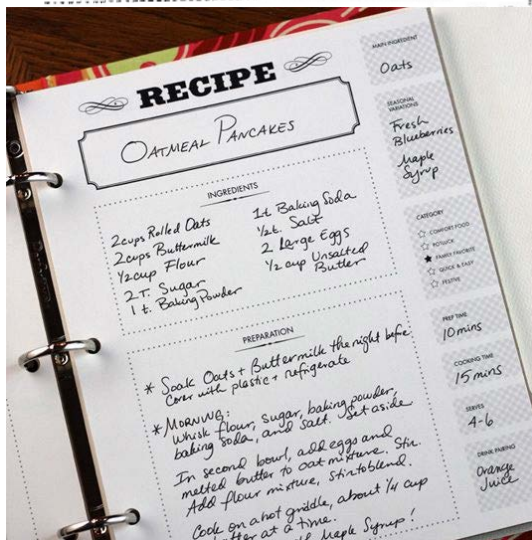 RECIPE
OATMEAL PANCAKES
INGREDIENTS
2 cups Rolled Oats
2 cups Buttermilk
1/2 cup Flour
2 T. Sugar
1 t. Baking Powder
1 t. Baking Soda
1/2 t. Salt
2 Large Eggs
1/2 cup Unsalted
Butter
PREPARATION
* Soak Oats + Buttermilk the night before
Cover with plastic + refrigerate
* MORNING:
Whisk flour, sugar, baking powder,
baking soda, and salt. Set aside
In second bowl, add eggs and
melted butter to oat mixture. Stir.
Add flour mixture, stir to blend.
Cook on a hot griddle, about 1/4 cup
at a time.
Maple Syrup!
MAIN INGREDIENT
Oats
SEASONAL
VARIATIONS
Fresh
Blueberries
Maple
Syrup
CATEGORY
☆ COMFORT FOOD
☆ POTLUCK
★ FAMILY FAVORITE
☆ QUICK & EASY
☆ FESTIVE
PREP TIME
10 mins
COOKING TIME
15 mins
SERVES
4-6
DRINK PAIRING
Orange
Juice